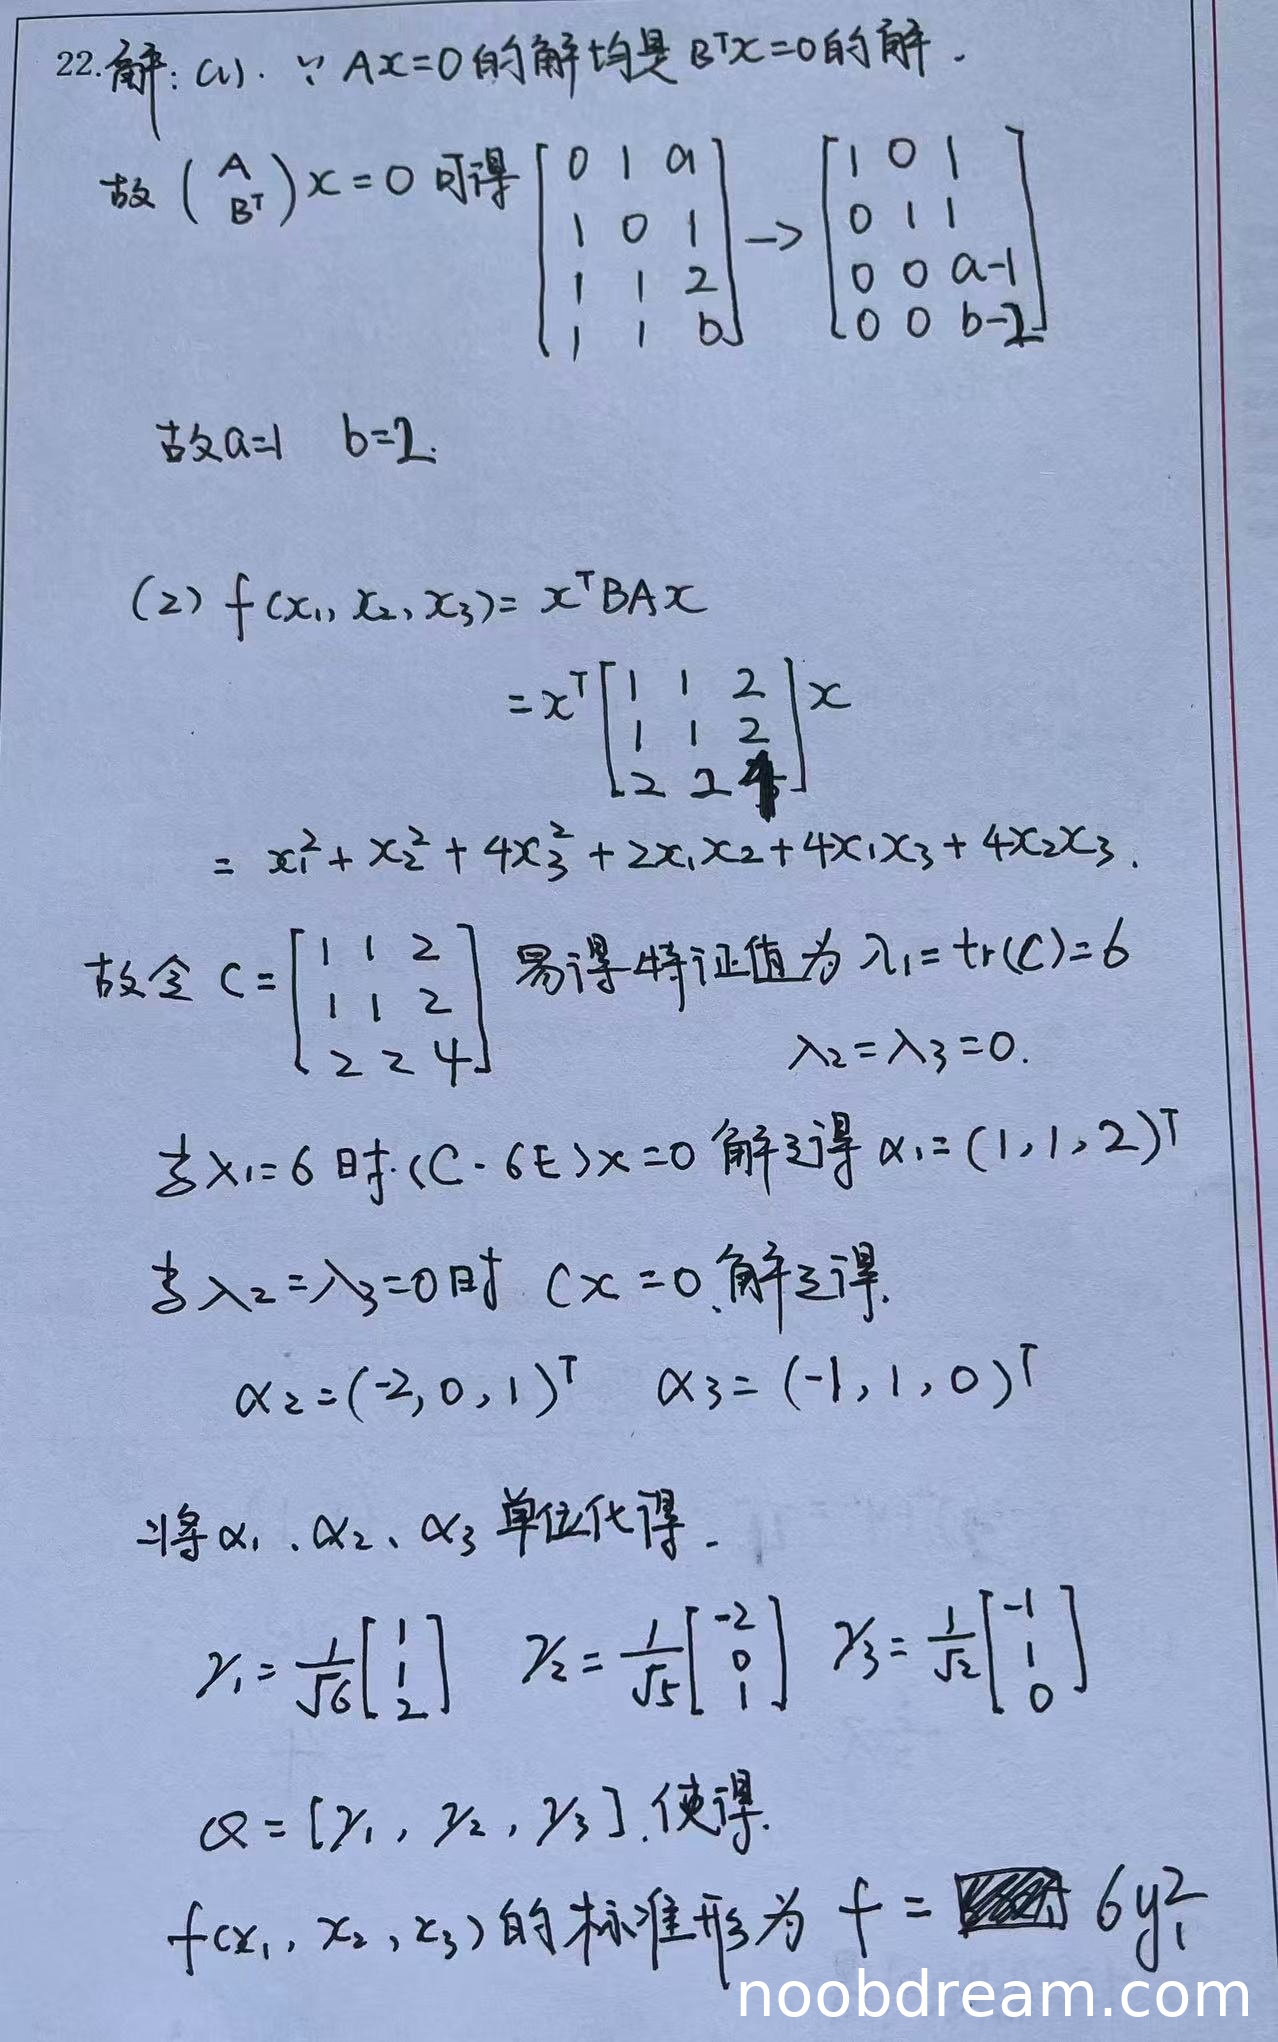 22.解:(1). ∵ Ax=0的解均是BᵀX=0的解.
故 (A Bᵀ) x = 0 可得 [0 1 a; 1 0 1; 1 1 2; 1 1 b] → [1 0 1; 0 1 1; 0 0 a-1; 0 0 b-2]
故a=1 b=2.
(2) f(x₁, x₂, x₃)= xᵀBAx
= xᵀ [1 1 2; 1 1 2; 2 2 4] x
= x₁² + x₂² + 4x₃² + 2x₁x₂ + 4x₁x₃ + 4x₂x₃.
故令 C = [1 1 2; 1 1 2; 2 2 4] 易得特证值为 λ₁= tr(C)=6
λ₂=λ₃=0.
当λ₁=6时.(C-6E)x=0 解之得 α₁=(1,1,2)ᵀ
当λ₂=λ₃=0时 Cx=0.解之得.
α₂=(-2,0,1)ᵀ α₃=(-1,1,0)ᵀ
将α₁、α₂、α₃单位化得.
γ₁= 1/√6 [1; 1; 2] γ₂= 1/√5 [-2; 0; 1] γ₃= 1/√2 [-1; 1; 0]
Q=[γ₁, γ₂, γ₃].使得.
f(x₁, x₂, x₃)的标准形为 f = 6y₁²
noobdream.com